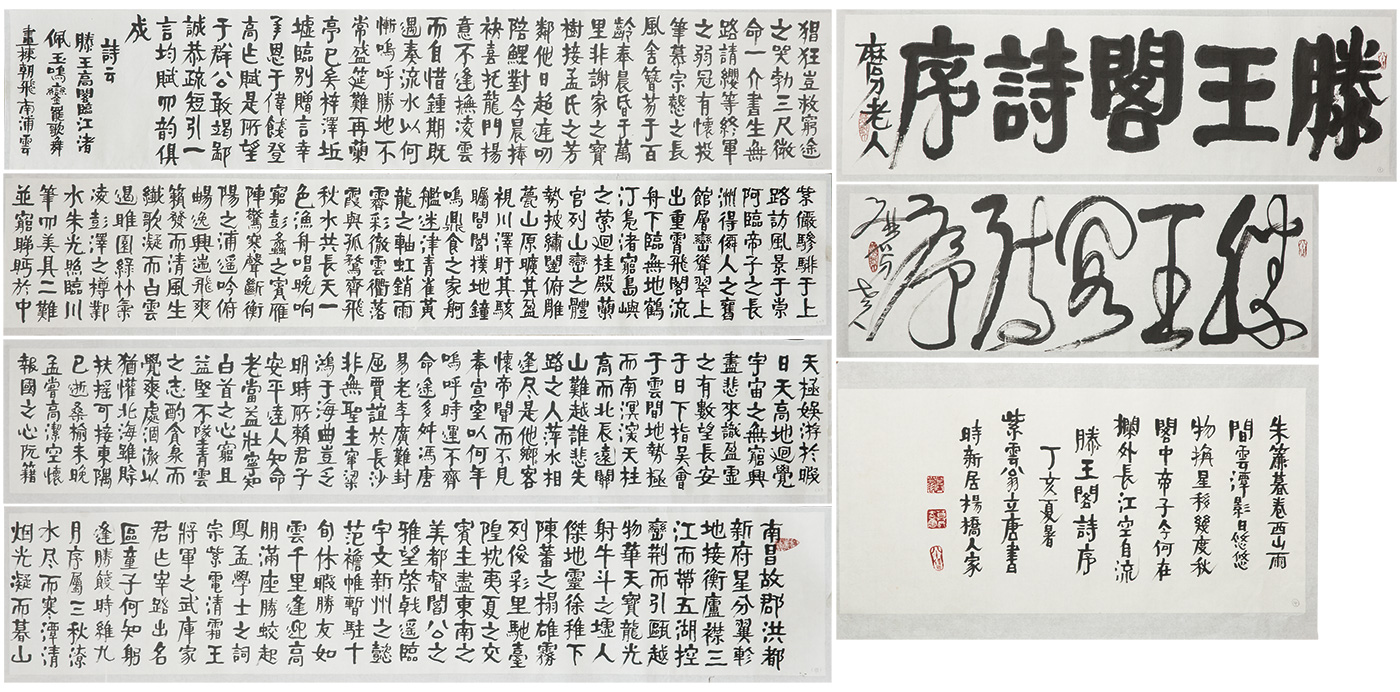 滕王閣詩序
磨刀老人
滕王閣詩序
南昌故郡洪都
新府星分翼軫
地接衡廬襟三
江而帶五湖控
蠻荊而引甌越
物華天寶龍光
射牛斗之墟人
傑地靈徐稚下
陳蕃之榻雄霧
列俊彩里馳臺
隍枕夷夏之交
賓主盡東南之
美都督閻公之
雅望棨戟遙臨
宇文新州之懿
范襜帷暫駐十
旬休暇勝友如
雲千里逢迎高
朋滿座騰蛟起
鳳孟學士之詞
宗紫電清霜王
將軍之武庫家
君作宰路出名
區童子何知躬
逢勝餞時維九
月序屬三秋潦
水尽而寒潭清
烟光凝而暮山
紫儼驂騑于上
路訪風景于崇
阿臨帝子之長
洲得僊人之舊
館層巒聳翠上
出重霄飛閣流
丹下臨無地鶴
汀鳧渚窮島嶼
之縈迴桂殿蘭
宮列山巒之體
勢披繡闥俯雕
甍山原曠其盈
視川澤盱其駭
矚閭閻撲地鐘
鳴鼎食之家舸
艦迷津青雀黃
龍之軸虹銷雨
霽彩徹雲衢落
霞與孤鶩齊飛
秋水共長天一
色漁舟唱晚响
窮彭蠡之濱雁
陣驚寒聲斷衡
陽之浦遥吟俯
暢逸興遄飛爽
籟發而清風生
纖歌凝而白雲
遏睢園綠竹氣
凌彭澤之樽鄴
水朱光照臨川
筆四美具二難
並窮睇眄於中
天極娛游於暇
日天高地迥覺
宇宙之無窮興
盡悲來識盈虛
之有數望長安
于日下指吳會
于雲間地勢極
而南溟深天柱
高而北辰遠關
山難越誰悲失
路之人萍水相
逢尽是他鄉客
懷帝閽而不見
奉宣室以何年
嗚呼時運不齊
命途多舛馮唐
易老李廣難封
屈賈誼於長沙
非無聖主竄梁
鴻于海曲豈乏
明時所賴君子
安平達人知命
老當益壯寧知
白首之心窮且
益堅不墜青雲
之志酌貪泉而
覺爽處涸澈以
猶懽北海雖賒
扶搖可接東隅
已逝桑榆未晚
孟嘗高潔空懷
報國之心阮籍
猖狂豈效窮途
之哭勃三尺微
命一介書生無
路請纓等終軍
之弱冠有懷投
筆慕宗慤之長
風舍簪笏于百
齡奉晨昏于萬
里非謝家之寶
樹接孟氏之芳
鄰他日趨庭叨
陪鯉對今晨捧
袂喜托龍門楊
意不逢撫凌雲
而自惜鍾期既
遇奏流水以何
慚嗚呼勝地不
常盛筵難再蘭
亭已矣梓澤坵
墟臨別贈言幸
承恩于偉餞登
高作賦是所望
于群公敢竭鄙
誠恭疏短引一
言均賦四韵俱
成
詩云
滕王高閣臨江渚
佩玉鳴鸞罷歌舞
畫棟朝飛南浦雲
朱簾暮卷西山雨
間雲潭影日悠悠
物換星移幾度秋
閣中帝子今何在
檻外長江空自流
滕王閣詩序
丁亥夏暑
紫雲翁立唐書
時新居楊橋人家